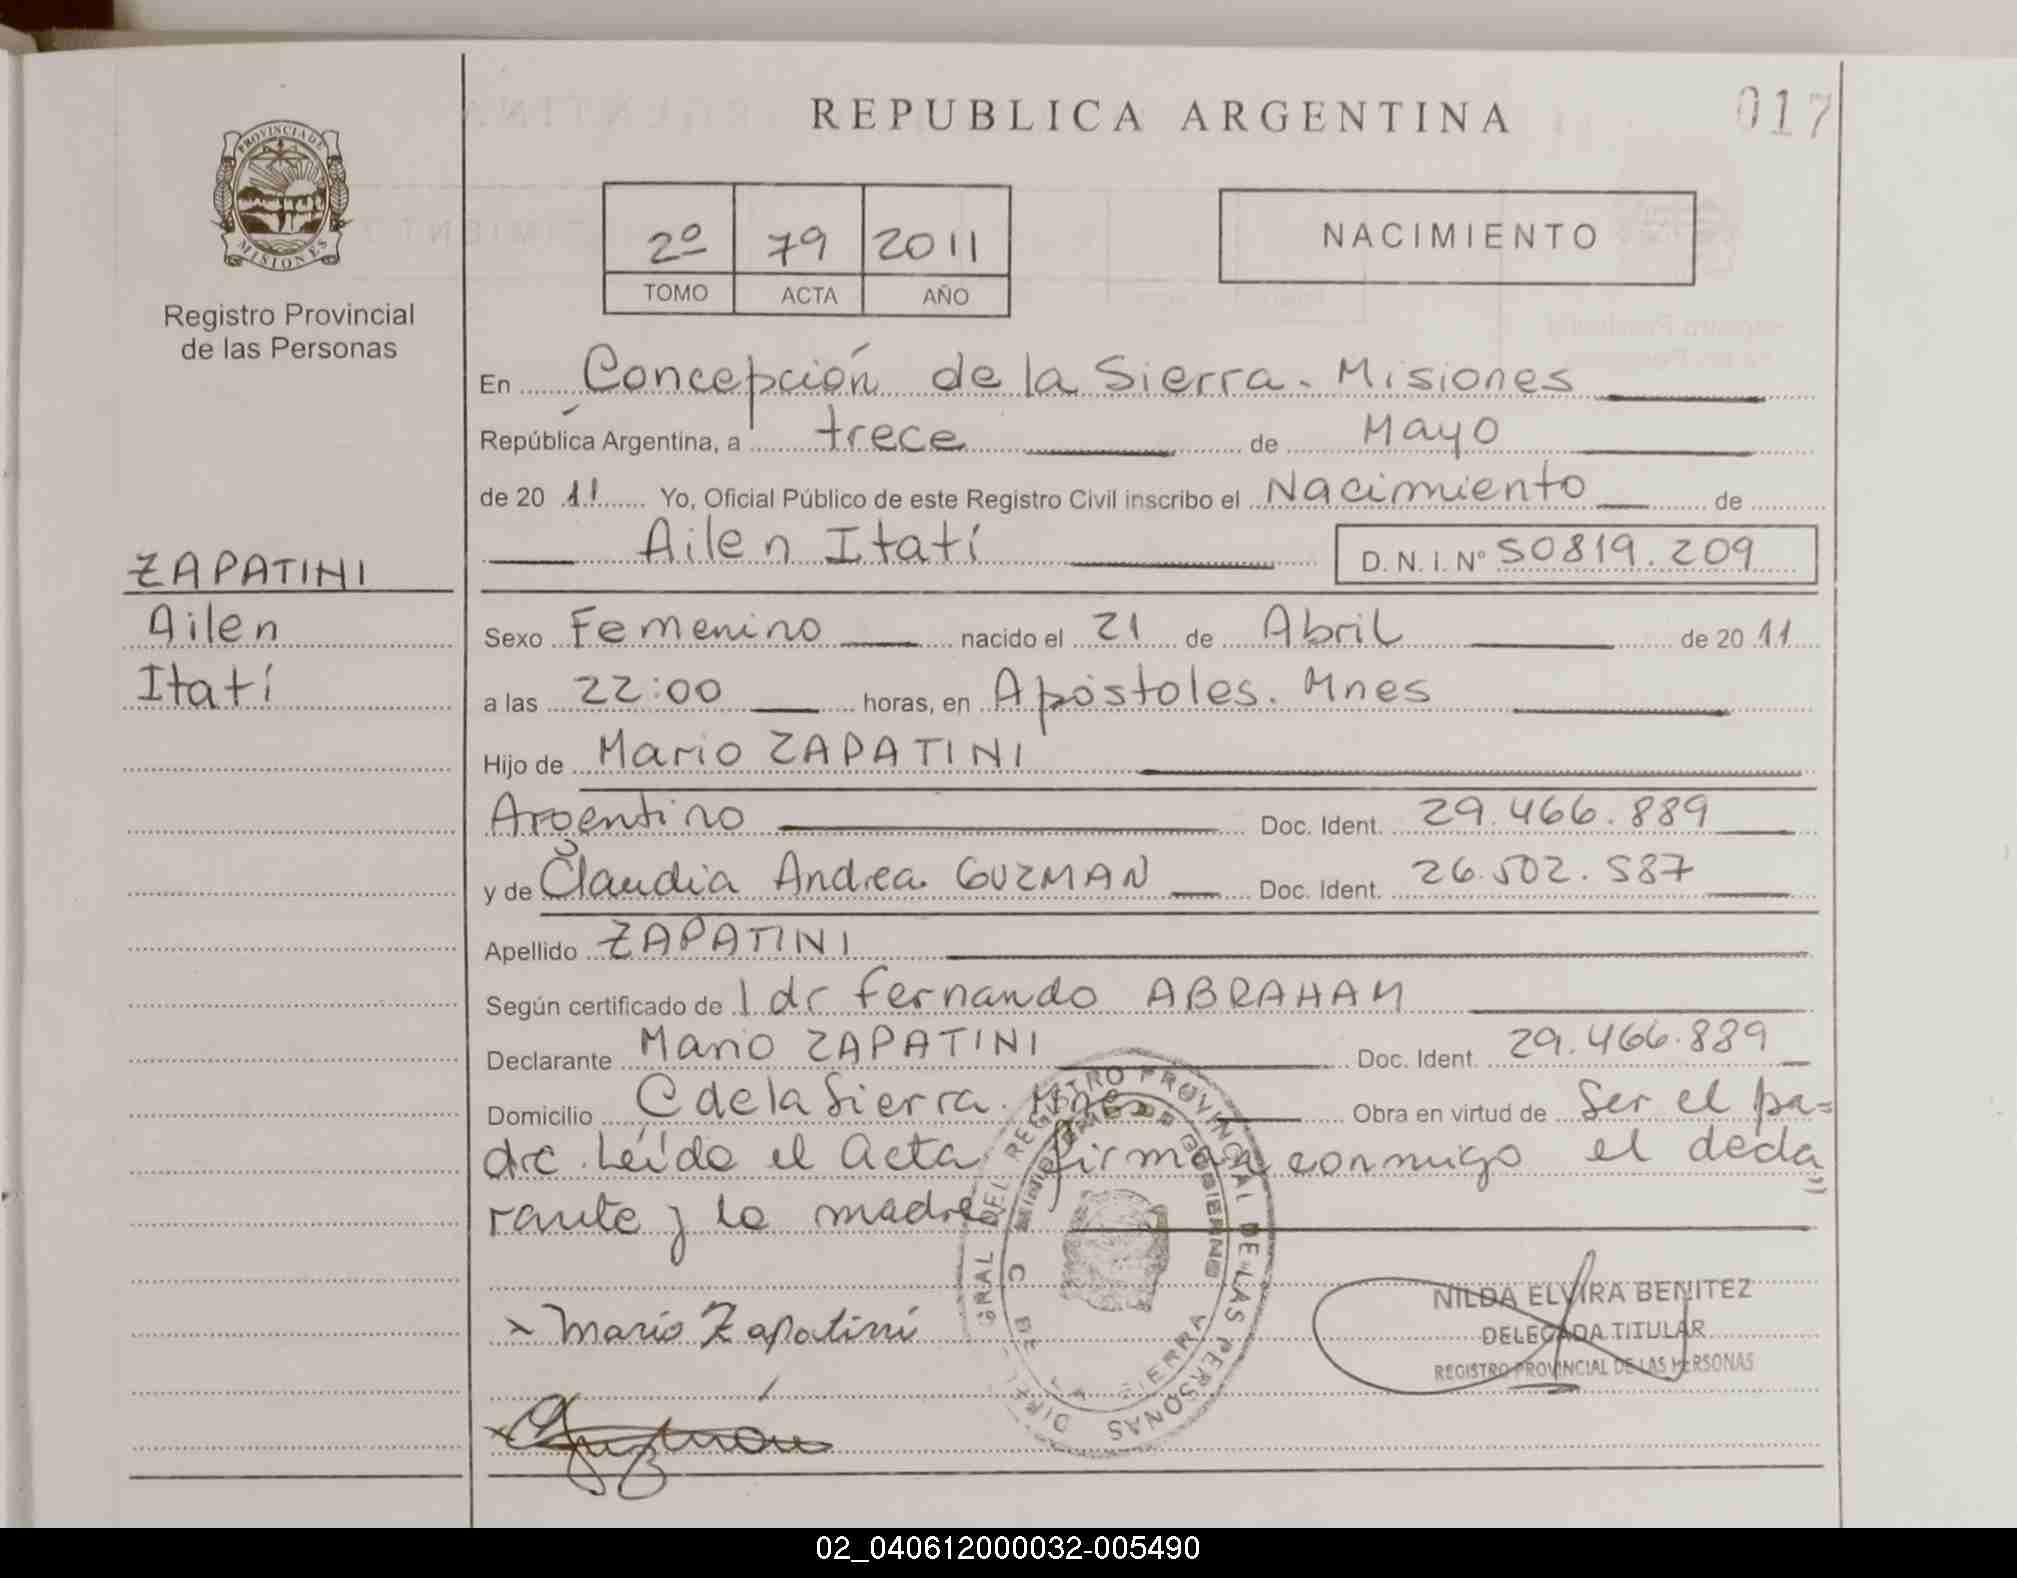 REPUBLICA ARGENTINA
017
PROVINCIA DE
MISIONES
Registro Provincial
de las Personas
2º 79 2011
TOMO ACTA AÑO
NACIMIENTO
En Concepción de la Sierra. Misiones
República Argentina, a trece de Mayo
de 20 11 Yo, Oficial Público de este Registro Civil inscribo el Nacimiento de
Ailen Itatí D. N. I. Nº 50819.209
ZAPATINI
Ailen
Itatí
Sexo Femenino nacido el 21 de Abril de 20 11
a las 22:00 horas, en Apóstoles. Mnes
Hijo de Mario ZAPATINI
Argentino Doc. Ident. 29.466.889
y de Claudia Andrea GUZMAN Doc. Ident. 26.502.587
Apellido ZAPATINI
Según certificado de l dr Fernando ABRAHAM
Declarante Mario ZAPATINI Doc. Ident. 29.466.889
Domicilio C de la Sierra. Mnes Obra en virtud de Ser el pa=
dre. Leída el Acta firman conmigo el decla
rante y la madre
x Mario Zapatini
x Guzmán
DIR. GRAL DEL REGISTRO PROVINCIAL DE LAS PERSONAS
MINISTERIO DE GOBIERNO
C DE LA SIERRA
NILDA ELVIRA BENITEZ
DELEGADA TITULAR
REGISTRO PROVINCIAL DE LAS PERSONAS
02_040612000032-005490